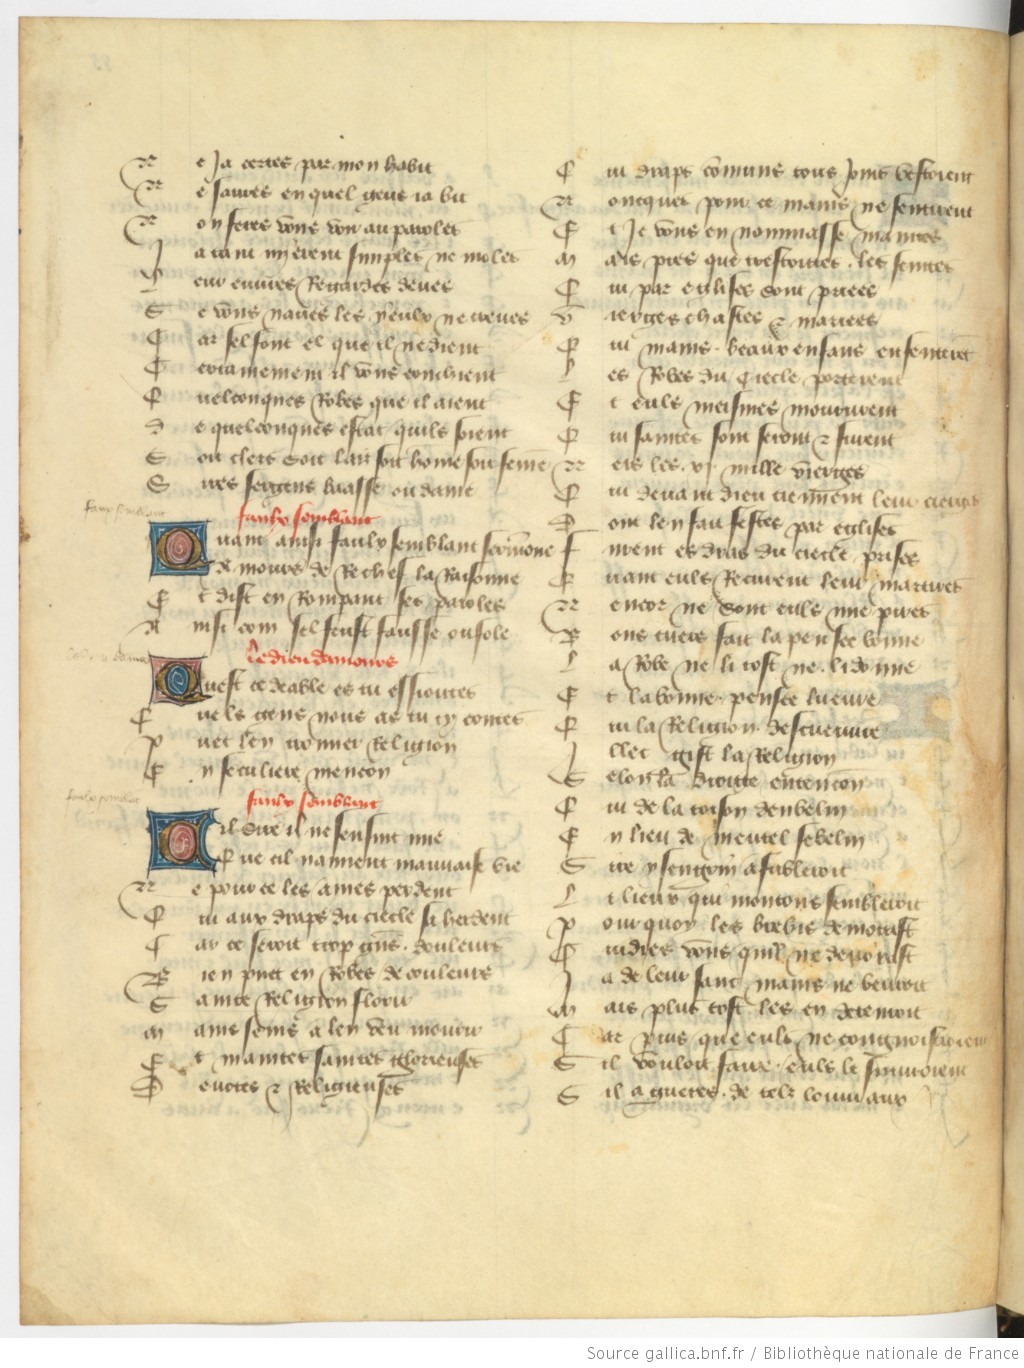 N e ja certes par mon habit
N e saures en quel gens ia bit
N on feres vous voir au paroles
J a tant nyerent simples ne moles
L eur euures Regardes deues
S e vous naues les yeulx ne creues
C ar sel font el que il ne dient
C ertainement il vous conchient
Q uelconques Robes que il aient
D e quelconques estat quils soient
S oit clers soit laii soit home soit feme
S ires sergens baasse ou dame
faulx semblant
faulx semblant
Q uant ainsi faulx semblant sermone
A mours de Rechef la Raisonne
E t dist en Rompant ses paroles
A insi com sel feust fausse ou fole
le dieu damours
Q uest ce deable es tu effrontes
Q uels gens nous as tu cy contes
P uet len trouuer Religion
E n seculiere mencon
faulx semblant
faulx semblant
O il sire il ne sensuit mie
Q ue cil mainent mauuaise vie
N e pour ce les ames perdent
Q ui aux draps du ciecle se herdent
C ar ce seroit trop gns douleurs
B ien puet en Robes de couleurs
S ainte Religion florir
M ains sains a len veu mourir
E t maintes saintes glorieuses
D euotes z Religieuses
Q ui draps comuns tous jours vestoient
N oncques pour ce mains ne sentirent
E t Je vous en nommasse maintes
M ais pres que trestoutes les saintes
Q ui par eglises sont priees
V ierges chastes z mariees
Q ui mains beaux enfans enfanterent
L es Robes du Ciecle porterent
E t euls meismes mourirent
Q ui saintes sont seront z furent
N eis les .xj. mille vierges
Q ui deuant dieu tiennent leur cierges
D ont len fait festes par eglises
F urent es dras du ciecle prises
Q uant euls Recurent leur martires
N encor ne sont euls mie pires
B ons cuers fait la pensee bonne
L a Robe ne li tost ne li donne
E t la bonne pensee lueure
Q ui la Religion descueuure
J llec gist la Religion
S elon la droitte entencon
Q ui de la toison denbelin
E n lieu de mentel sebelin
S ire ysengrin afubleroit
L i lieux qui moutons sembleroit
P our quoy les brebis demorast
C uidies vous quil ne deuorast
J a de leur sanc mains ne beuroit
M ais plus tost les en deceuroit
C ar puis que euls ne congnoistroient
S il vouloit faire euls le suiuroient
S il a gueres de telz louuiaux